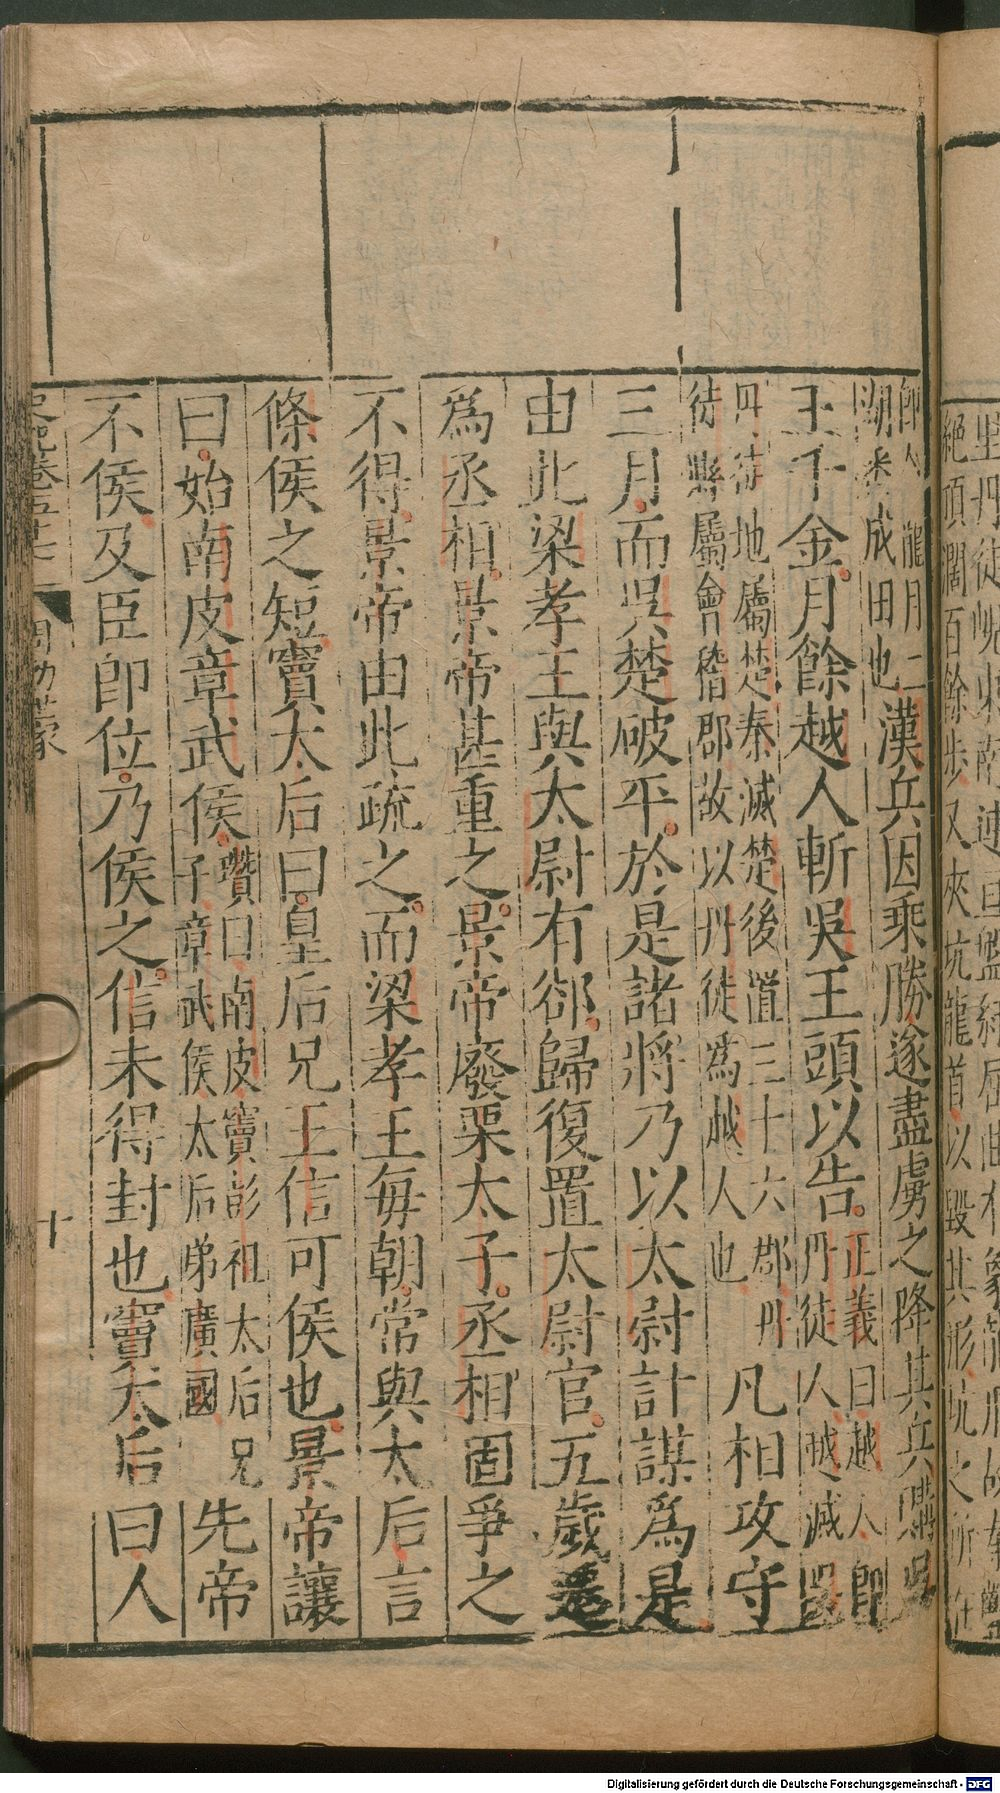 坐丹徒峴東南連亘盤紆屈曲有象龍形故秦鑿
絕頂闊百餘步又夾坑龍首以毀其形坑之所在
即今龍月二
湖悉成田也
漢兵因乘勝遂盡虜之降其兵購吳
王千金。月餘越人斬吳王頭以告。
正義曰越人即
丹徒人越滅置
丹徒地屬楚秦滅楚後置三十六郡丹
徒縣屬會稽郡故以丹徒為越人也
凡相攻守
三月而吳楚破平。於是諸將乃以太尉計謀為是
由此梁孝王與太尉有卻。歸復置太尉官。五歲遷
為丞相。景帝甚重之。景帝廢栗太子。丞相固爭之
不得。景帝由此疏之。而梁孝王每朝。常與太后言
條侯之短。竇太后曰。皇后兄王信可侯也。景帝讓
曰。始南皮章武侯。
瓚曰南皮竇彭祖太后兄
子章武侯太后弟廣國
先帝
不侯。及臣即位。乃侯之。信未得封也。竇太后曰人
史記卷五十七
周勃世家
十
Digitalisierung gefördert durch die Deutsche Forschungsgemeinschaft - DFG